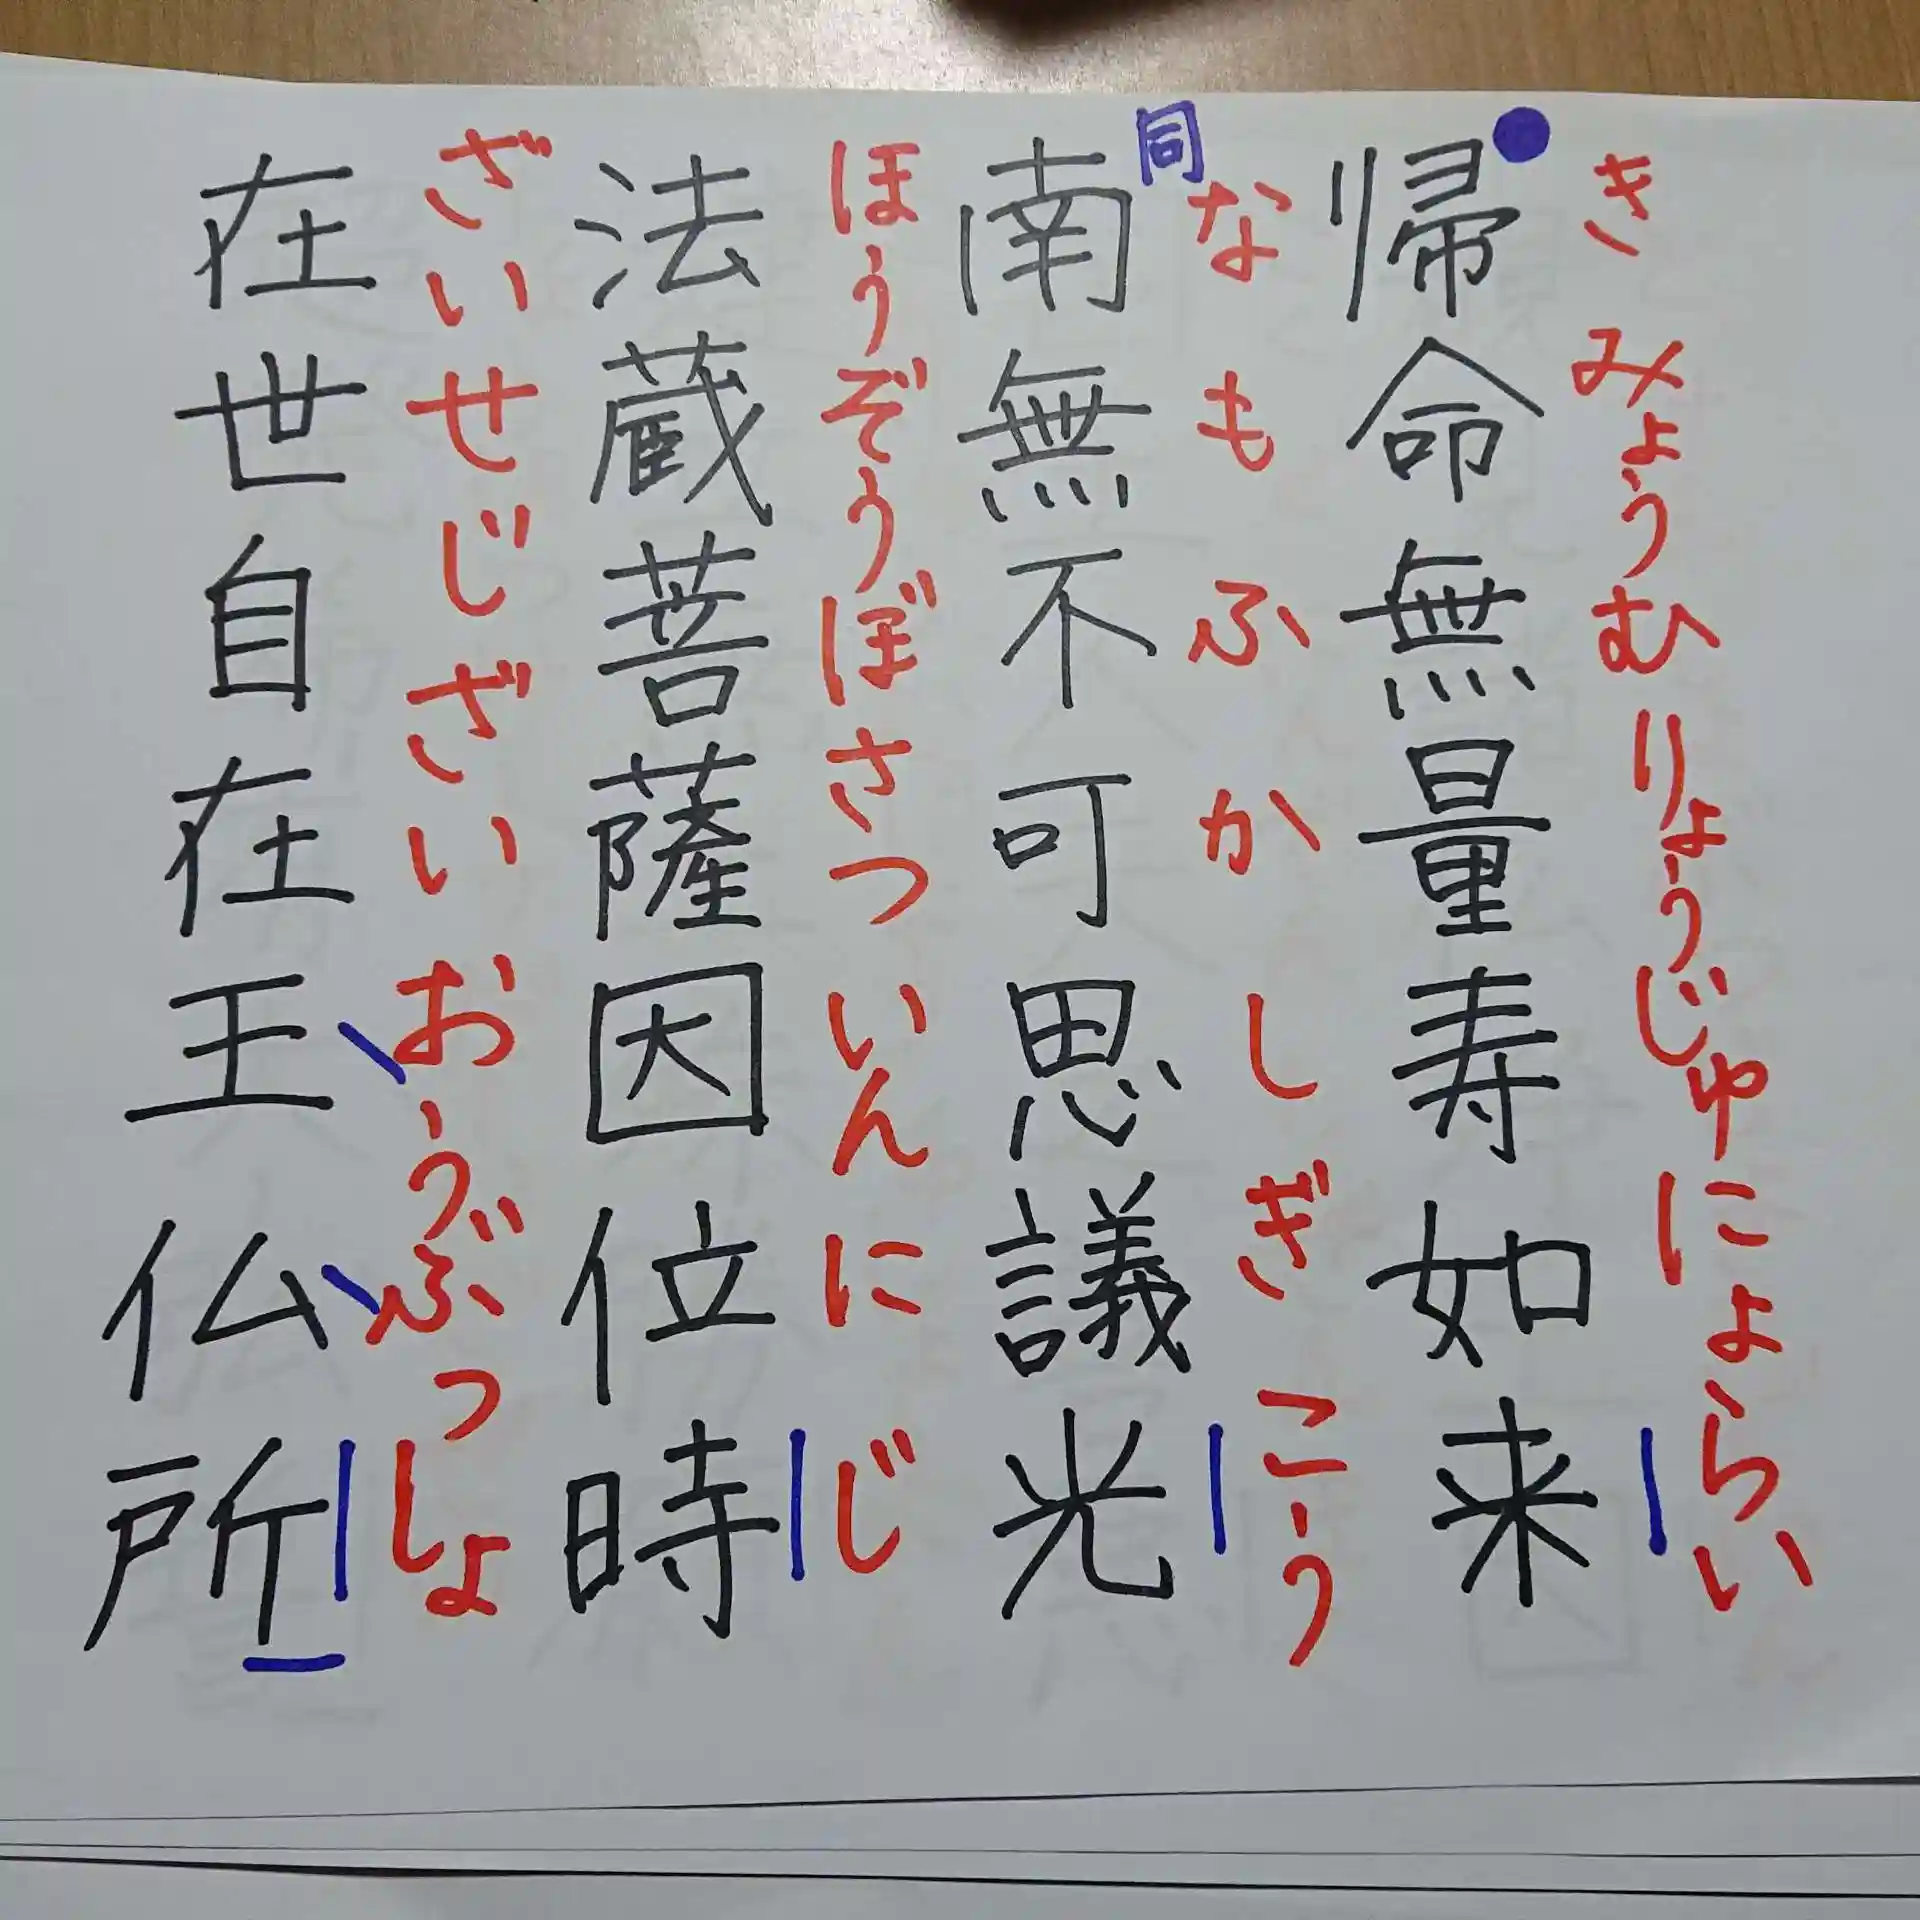 きみょうむりょうじゅにょらい
帰命無量寿如来
同
なもふかしぎこう
南無不可思議光
ほうぞうぼさついんにじ
法蔵菩薩因位時
ざいせじざいおうぶっしょ
在世自在王仏所